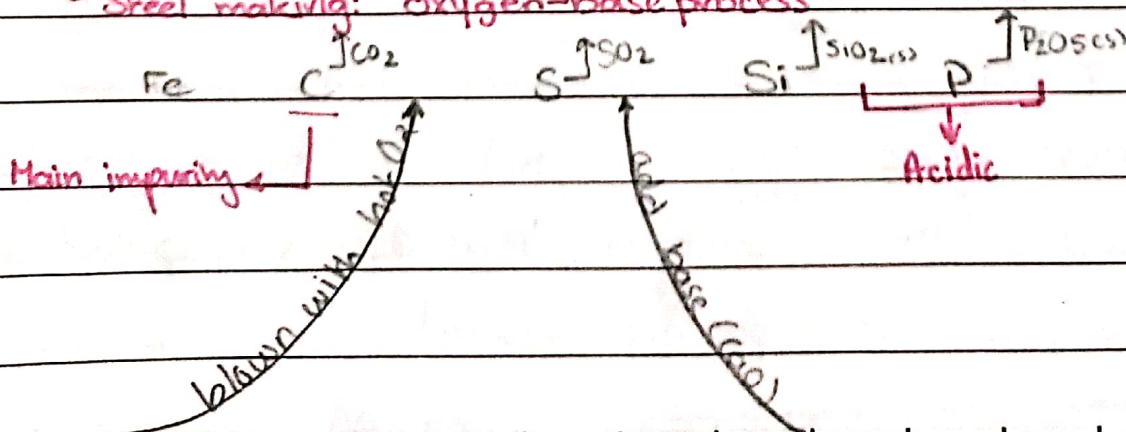 Steel making: Oxygen-base process
Fe C CO₂ S SO₂ Si SiO₂(s) P P₂O5(s)
Main impuriry
Acidic
blown with hot O₂
add base (CaO)